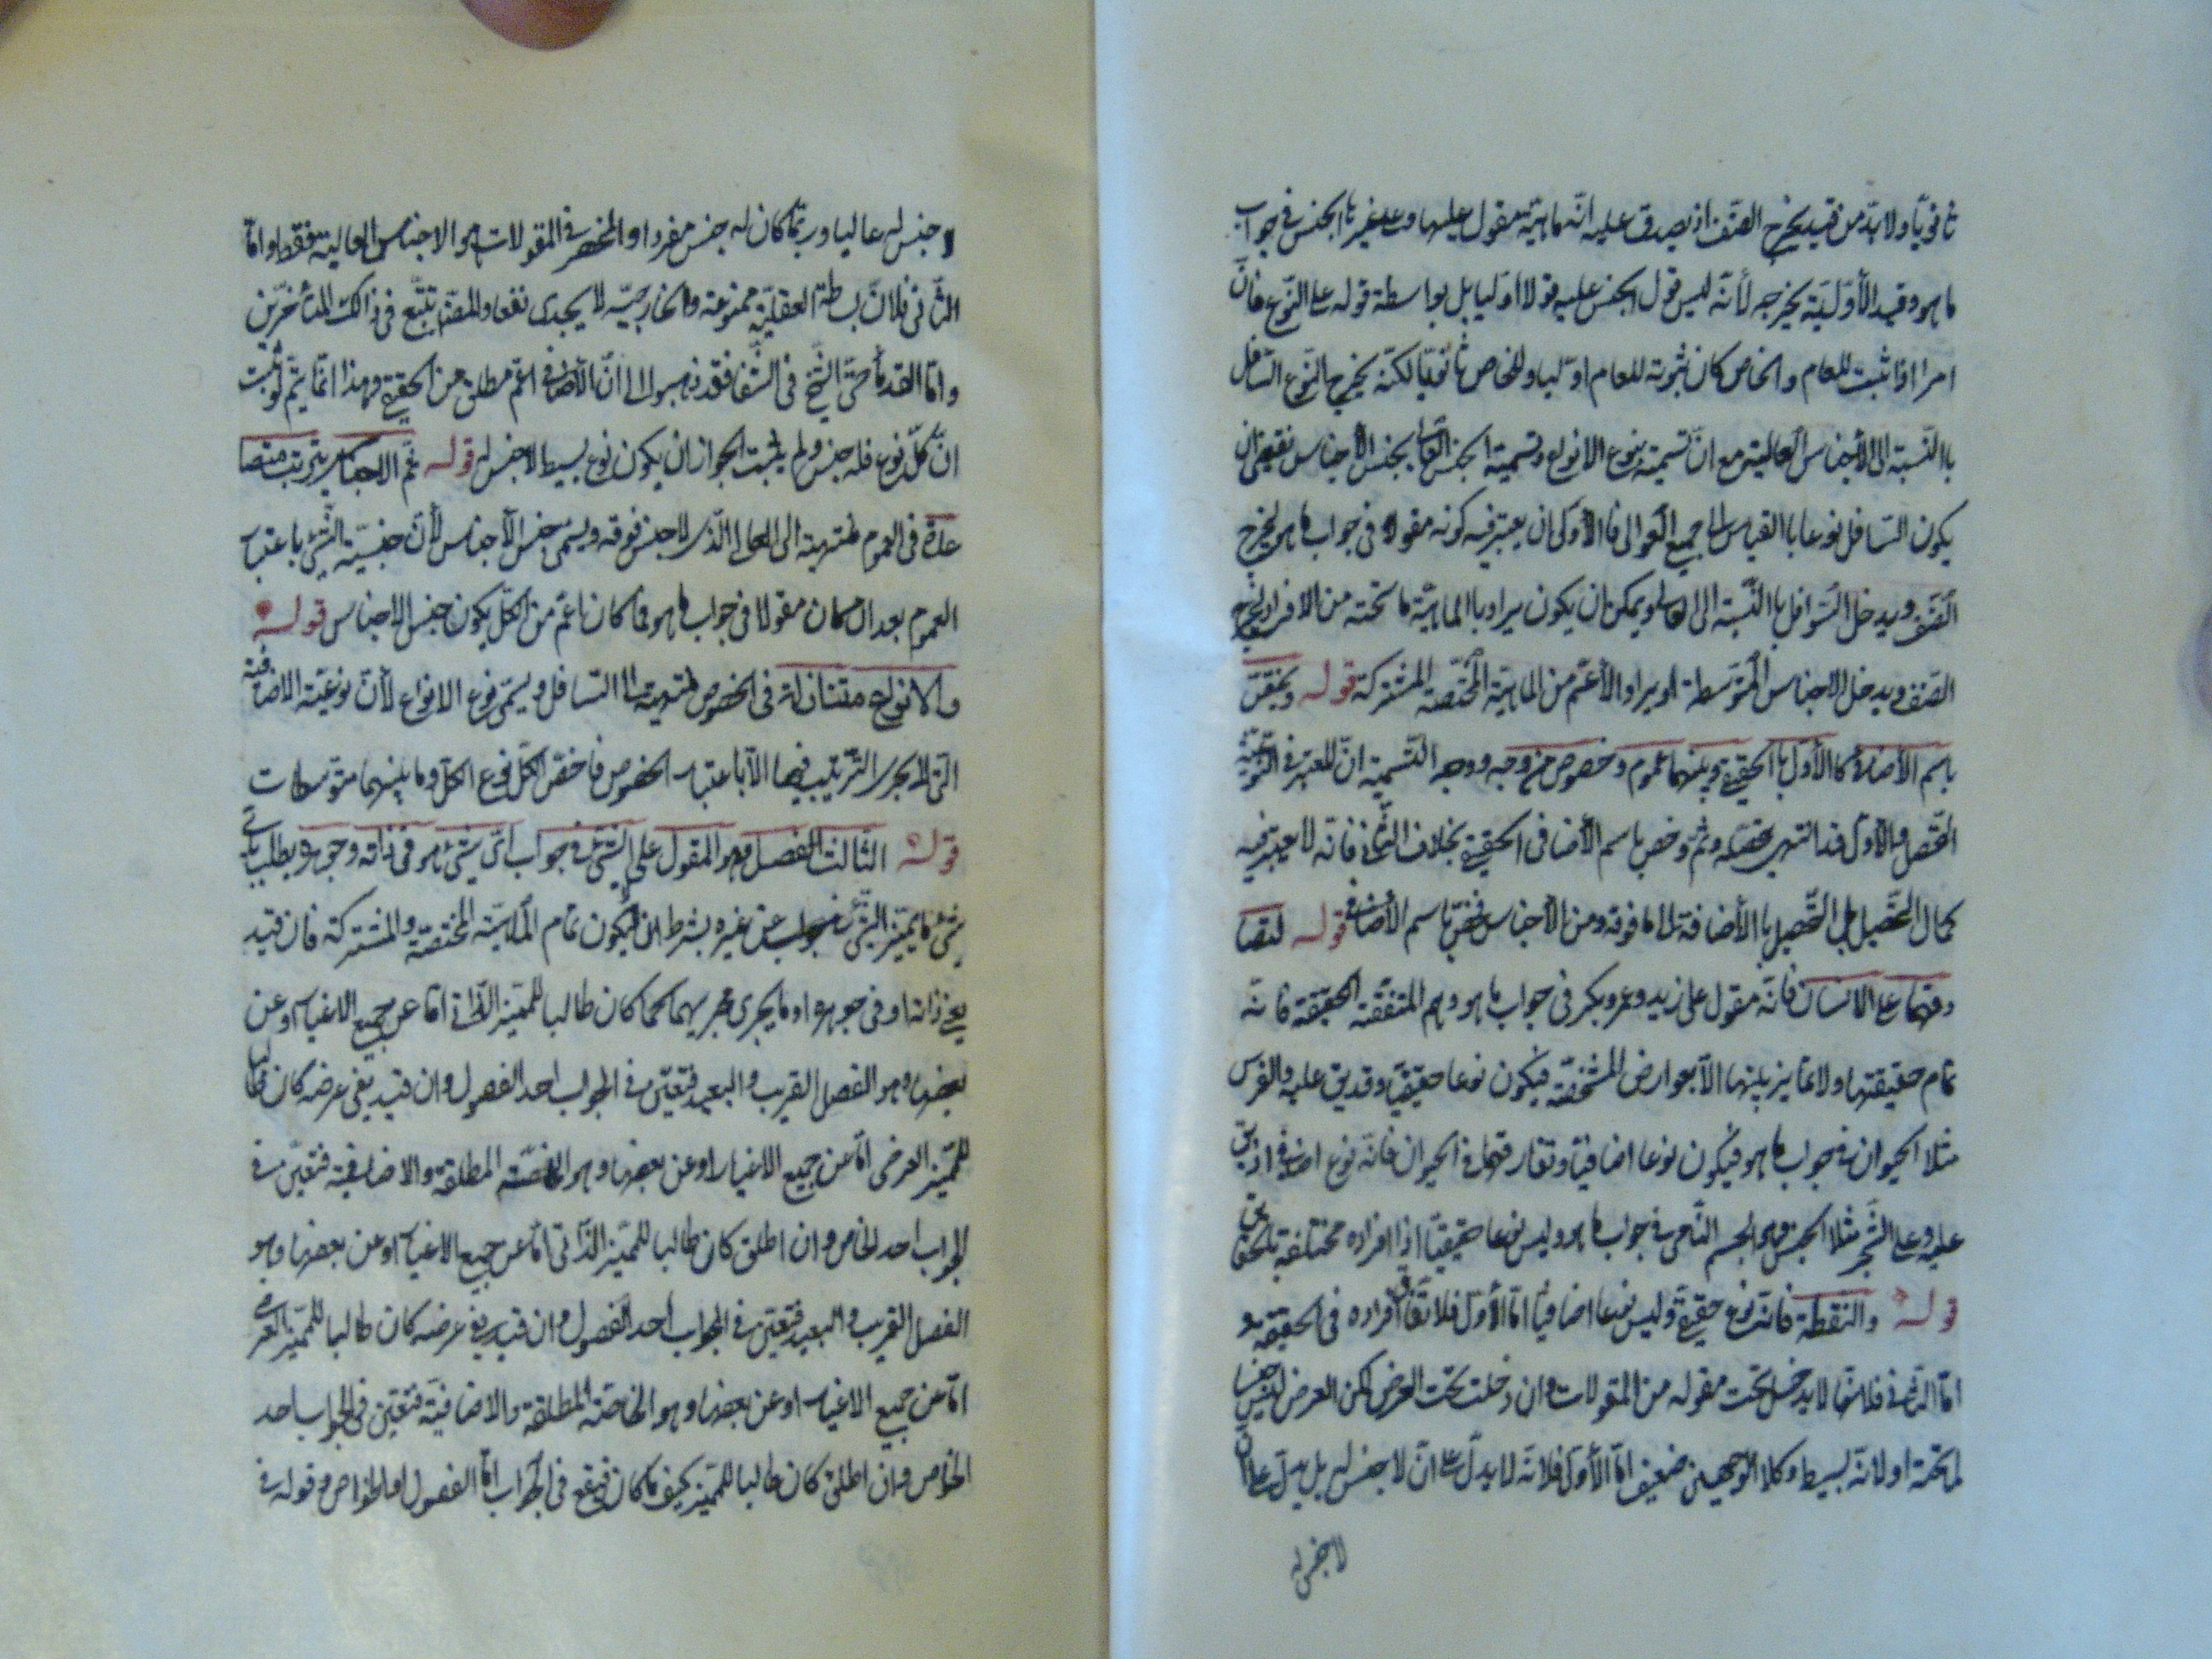 ثانويّا ولا بدّ من قيد يخرج الصّنف اذ يصدق عليه انّه ماهيّة مقول عليها وعلى غيرها الجنس فى جواب
ما هو وقيد الأوّليّة يخرجه لأنّه ليس قول الجنس عليه قولا اوليا بل بواسطة قوله على النّوع فانّ
امرا اذا ثبت للعام والخاص كان ثبوته للعام اوّليا وللخاص ثانويّا لكنّه يخرج النّوع السّافل
باالنّسبة الى الأجناس العالية مع انّ تسميته نوع الانواع وتسمية الجنس العالى بجنس الأجناس يقتضى ان
يكون السّافل نوعا باالقياس الى جميع العوالى فاالأوّلى ان يعتبر فيه كونه مقولا فى جواب ما هو ليخرج
الصّنف ويدخل السّوافل باالنّسبة الى العالى ويمكن ان يكون يراد باالماهيّة ما تحته من الافراد ليخرج
الصّنف ويدخل الاجناس المتوسّطة او يراد الأعمّ من الماهيّة المختصّة المشتركة قوله ويختصّ
باسم الأضافى كاالأوّل باالحقيقى وبينهما عموم وخصوص من وجه ووجه التّسمية انّ المعتبر فى النّوعيّة
التّحصل والأوّل قد انتهى تحصّله وتمّ وخصّ باسم الأضافى الحقيقى بخلاف الثّانى فانّه لا يعتبر فيه
كمال التّحصيل بل التّحصيل باالأضافة الى ما فوقه ومن الأجناس فخصّ باسم الأضافى قوله لتصا
دقهما على الانسان فانّه مقول على زيد وعمرو وبكر فى جواب ما هو وهم المتّفقة الحقيقة فانّه
تمام حقيقتها ولا تمايز بينها الّا بعوارض المشخّصة فيكون نوعا حقيقيّا وقد يق عليه والفرس
مثلا الحيوان فى جواب ما هو فيكون نوعا اضافيّا وتفارقهما فى الحيوان فانّه نوع اضافى اذ يق
عليه وعلى الشّجر مثلا الجنس وهو الجسم النّامى فى جواب ما هو وليس نوعا حقيقيّا اذا افراده مختلفة بالحقايق
قوله والنّقطة فانّه نوع حقيقىّ وليس نوعا اضافيا امّا الأوّل فلاتّفاق افراده فى الحقيقة و
امّا الثّانى فلانّها لا يدخل تحت مقوله من المقولات وان دخلت تحت العرض لكن العرض ليس جنسا
لما تحته او لانّه بسيط وكلا الوجهين ضعيف امّا الأوّل فلانّه لا يدلّ على ان لا جنس له بل يدلّ على ان
لا جنس له
لا جنس له عاليا وربّما كان له جنس مفرد او المنحصر فى المقولات هو الاجناس العالية فقط وامّا
الثّانى فلانّ بساطة العقليّة ممنوعة والخارجيّة لا يجدى نفعا والمصنّف تتبّع فى ذالك المتأخّرين
وامّا القدمأ حتّى الشّيخ فى الشّفا فقد ذهبوا الى انّ الأضافى اعمّ مطلق من الحقيقى وهذا انّما يتمّ لو ثبت
انّ كلّ نوع فله جنس ولم يثبت لجواز ان يكون نوع بسيط لا جنس له قوله ثمّ الاجناس يترتّب متصا
عدة فى العموم منتهية الى العالى الّذى لا جنس فوقه ويسمّى جنس الأجناس لأنّ جنسيّة الشّئ باعتبار
العموم بعد ان كان مقولا فى جواب ما هو فما كان اعمّ من الكلّ يكون جنس الاجناس قوله
والانواع متنازلة فى الخصوص منتهية الى السّافل ويسمّى نوع الانواع لأنّ نوعيّة الاضافيّة
الّتى لا يجرى التّرتيب فيها الّا باعتبار الخصوص فاخصّ الكلّ نوع الكلّ وما بينهما متوسطات
قوله الثّالث الفصل وهو المقول على الشّئ فى جواب اىّ شئ هو فى ذاته وجوهره يطلب باىّ
شئ ما يميّز الشّئ عن غيره بشرط ان لا يكون تمام الماهيّة المختصّة والمشتركة فان قيد
بفى ذاته او فى جوهره او ما يجرى مجريهما كان طالبا للمميّز الذّاتى امّا عن جميع الاغيار او عن
بعضها وهو الفصل القريب والبعيد فتعيّن فى الجواب احد الفصول وان قيد بفى عرضه كان طالبا
للمميّز العرضى امّا عن جميع الاغيار او عن بعضها وهو الخاصّة المطلقة والاضافية فتعيّن فى
الجواب احد الخاص وان اطلق كان طالبا للمميّز الذّاتى امّا عن جميع الاغيار او عن بعضها وهو
الفصل القريب والبعيد فتعيّن فى الجواب أحد الفصول وان قيد بفى عرضه كان طالبا للمميّز العرضى
امّا عن جميع الاغيار او عن بعضها وهو الخاصّة المطلقة والاضافيّة فتعيّن فى الجواب احد
الخاص وان اطلق كان طالبا للمميّز كيف ما كان فيقع فى الجواب امّا الفصول او الخواص وقوله فى